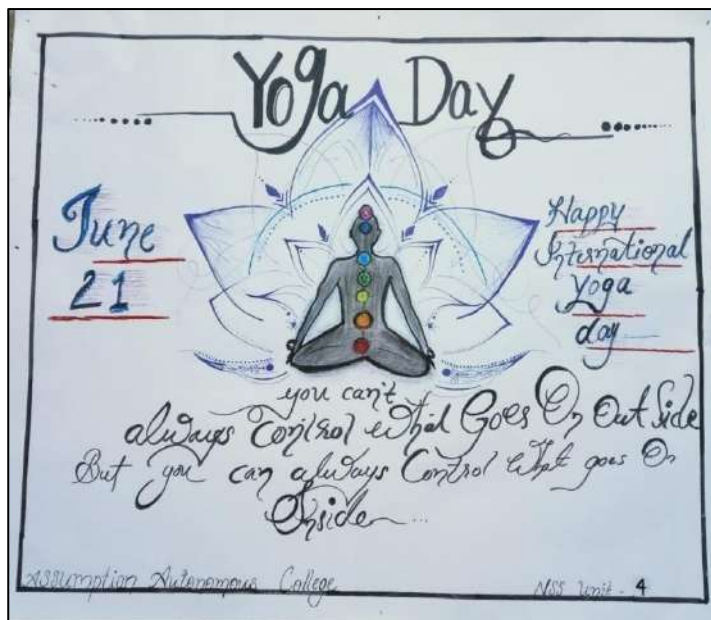 Yoga Day
June
21
Happy
International
Yoga
day
you can't
always Control What Goes On Out Side
But you can always Control What goes On
Inside...
Assumption Autonomous College
NSS Unit - 4